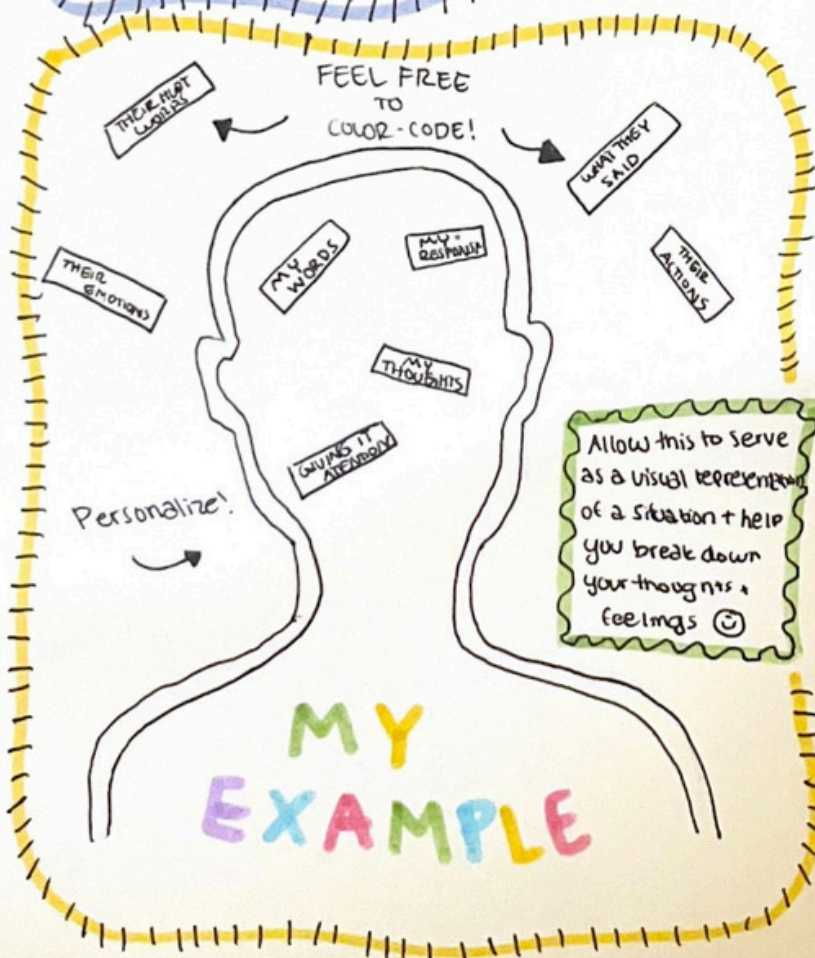 FEEL FREE
TO
COLOR-CODE!
THEIR HURT
WORDS
WHAT THEY
SAID
THEIR
EMOTIONS
MY
WORDS
MY
RESPONSE
THEIR
ACTIONS
MY
THOUGHTS
GIVING IT
ATTENTION
Personalize!
Allow this to serve
as a visual representation
of a situation + help
you break down
your thoughts +
feelings
MY
EXAMPLE